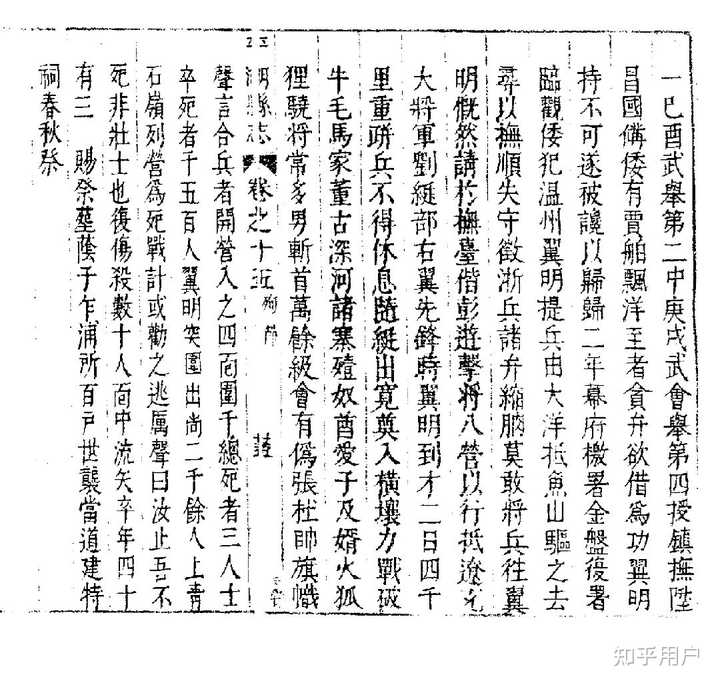 一己酉武舉第二中庚戌武會舉第四授鎮撫陞
昌國備倭有賈舶飄洋至者貪弁欲借為功翼明
持不可遂被讒以歸歸二年幕府檄署金盤後署
臨觀倭犯温州翼明提兵由大洋抵魚山驅之去
尋以撫順失守徵浙兵諸弁縮朒莫敢將兵往翼
明慨然請於撫臺偕彭遊擊將八營以行抵遼元
大將軍劉綎部右翼先鋒時翼明到才二日四千
里重趼兵不得休息隨綎出寛奠入横壤力戰破
牛毛馬家董古深河諸寨殪奴酋愛子及婿火狐
狸驍將常多男斬首萬餘級會有偽張杜帥旗幟
平湖縣志 卷之十五 殉節
聲言合兵者開營入之四面圍千總死者三人士
卒死者千五百人翼明突圍出尚二千餘人上青
石嶺列營為死戰計或勸之逃厲聲曰汝止吾不
死非壯士也復傷殺數十人面中流矢卒年四十
有三 賜祭塟蔭子乍浦所百戸世襲當道建特
祠春秋祭
知乎用户